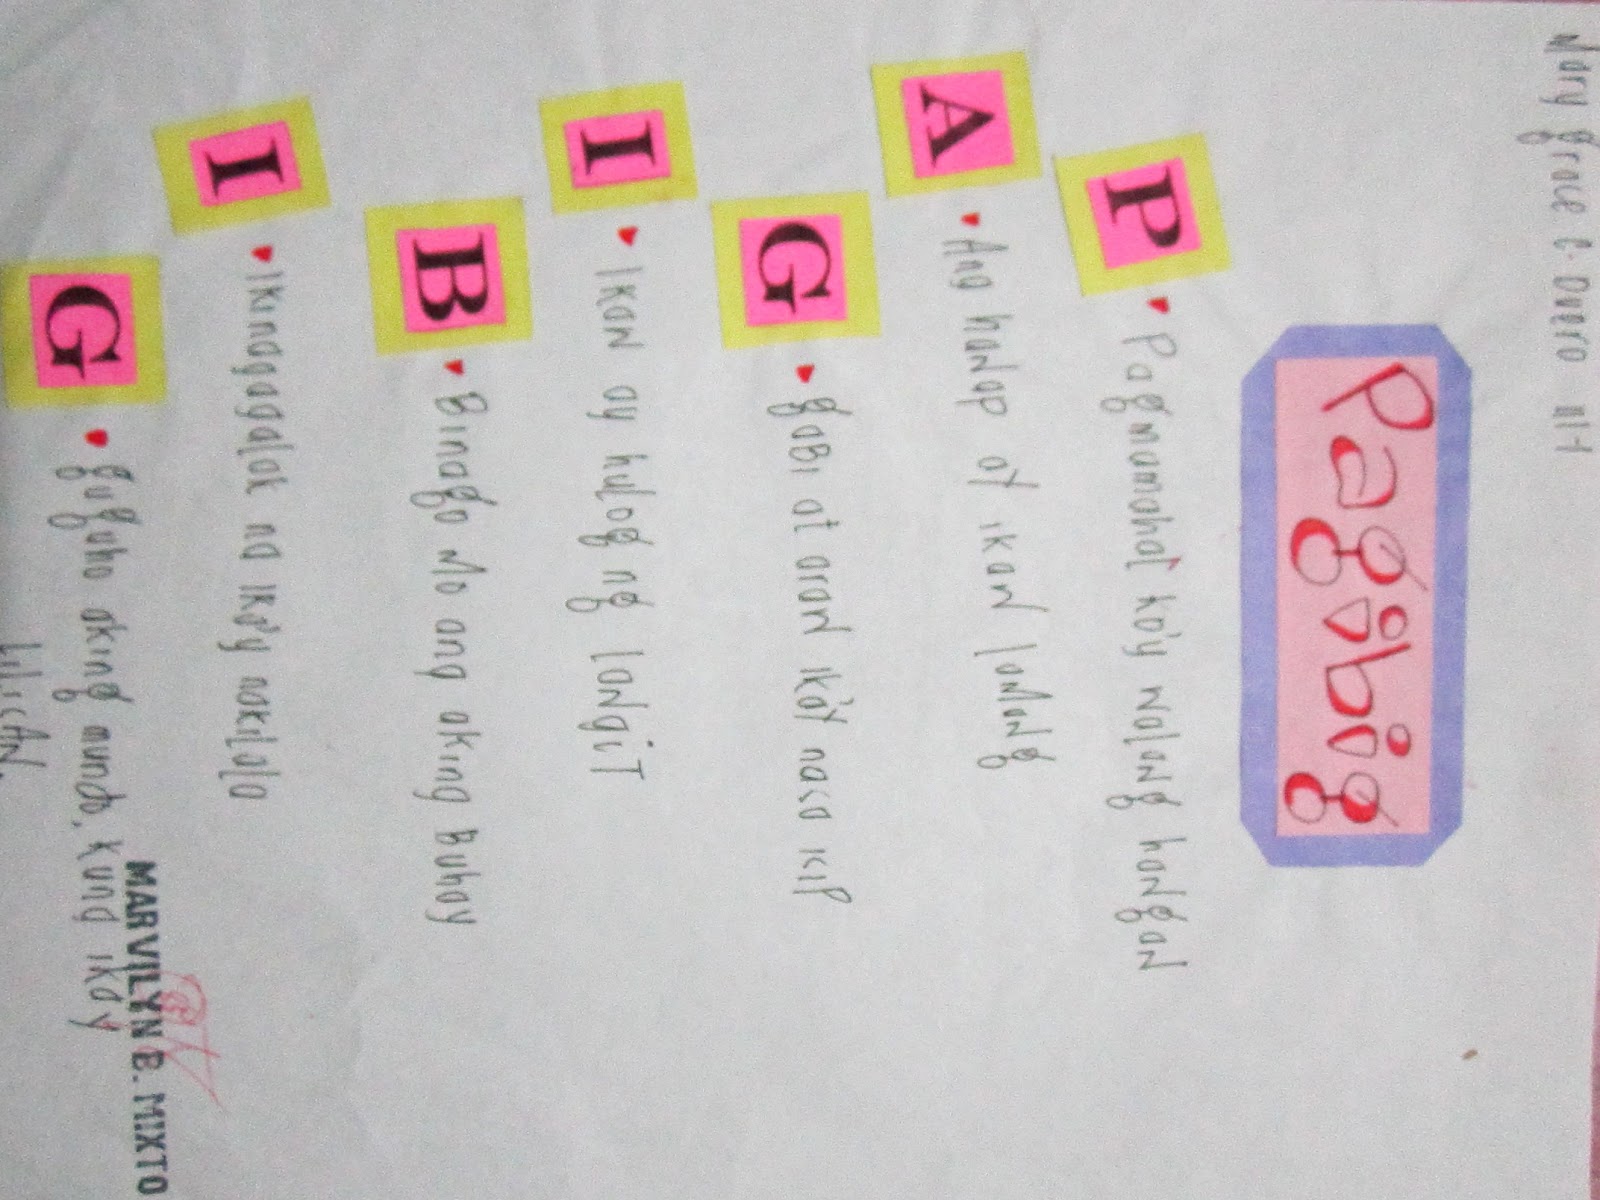 Mary grace C. Dvero III-1
Pagibig
P Pagmamahal ko'y walang hangan
A Ang hanap ay ikaw lamang
G gabi at araw ika'y nasa isip
I Ikaw ay hulog ng langit
B Binago mo ang aking Buhay
I Ikinagagalak na ika'y nakilala
G guguho aking mundo, kung ika'y
lilisan.
MARVILYN B. MIXTO